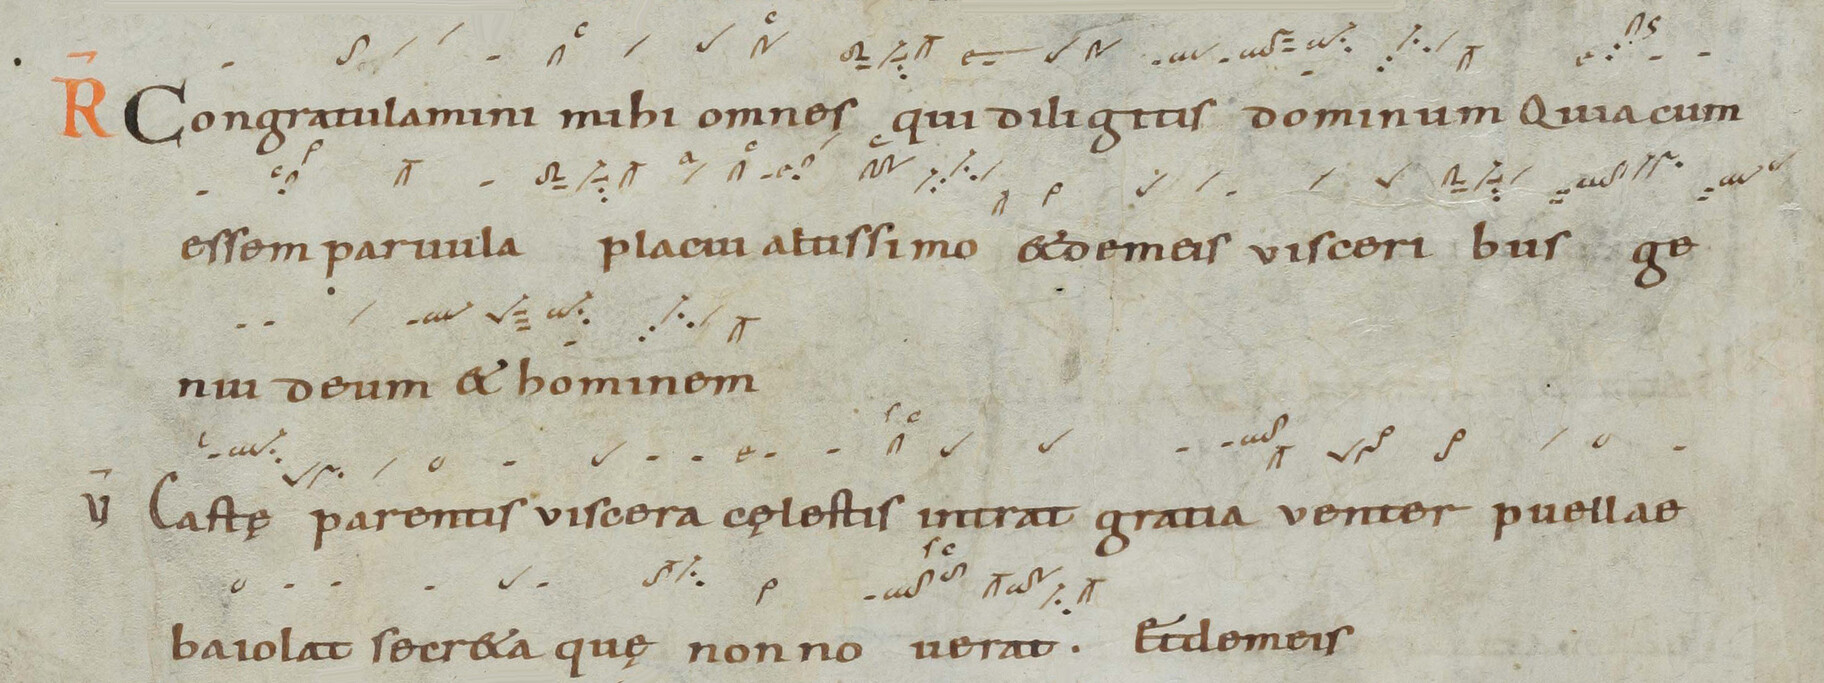 R Congratulamini mihi omnes qui diligitis dominum Quia cum
essem paruula placui altissimo & de meis visceri bus ge
nui deum & hominem
V Castę parentis viscera cęlestis intrat gratia venter puellae
baiolat secr&a quę non no uerat. Et de meis